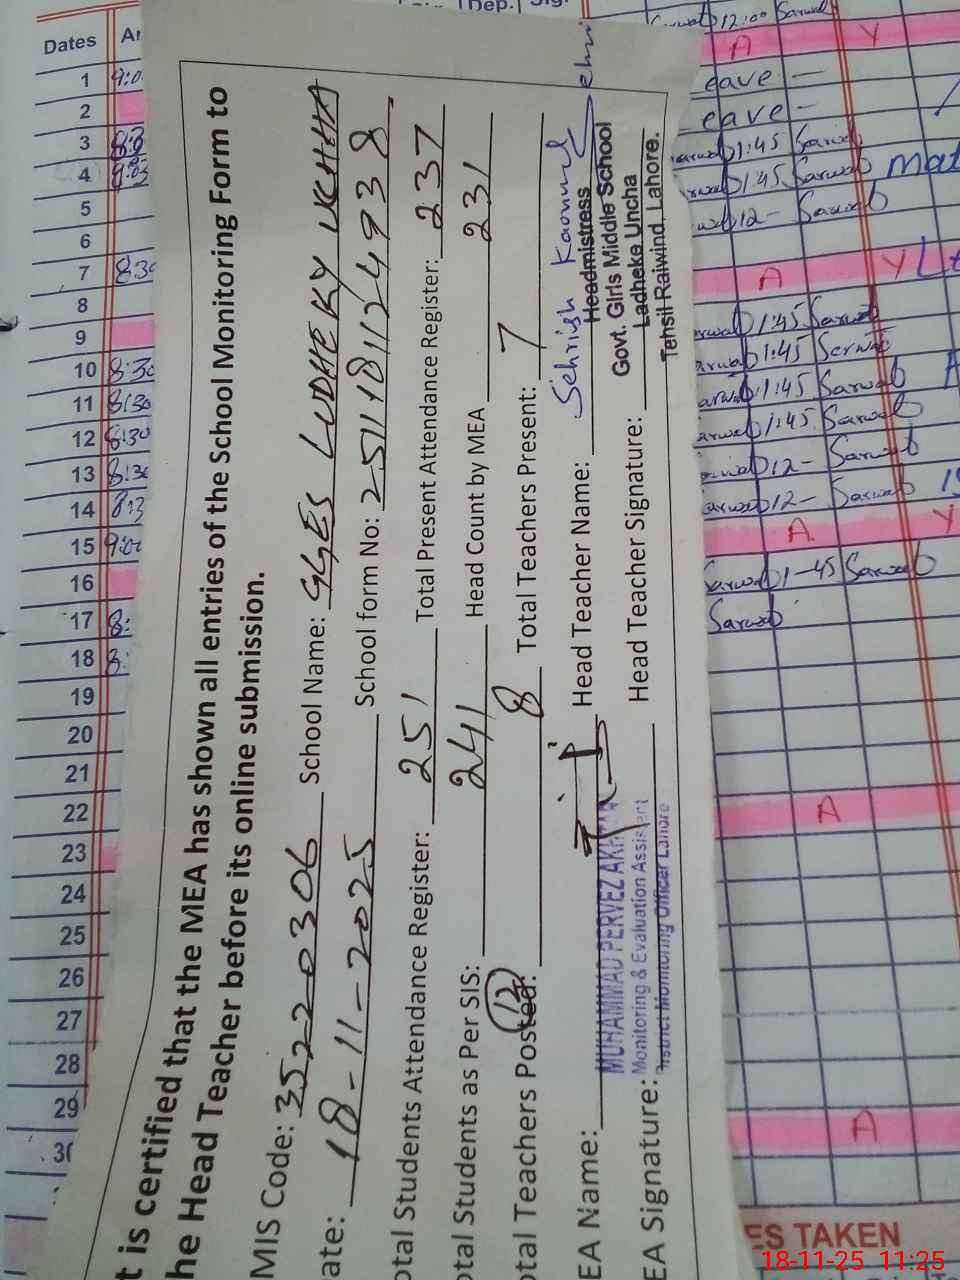 t is certified that the MEA has shown all entries of the School Monitoring Form to
he Head Teacher before its online submission.
MIS Code: 35220306 School Name: GGES LUDHEKY UCHHA
ate: 18-11-2025 School form No: 2511181124938
otal Students Attendance Register: 251 Total Present Attendance Register: 237
otal Students as Per SIS: 241 Head Count by MEA 231
otal Teachers Posted: 12 8 Total Teachers Present: 7
EA Name: Head Teacher Name: Sehrish Kaonwal
MUHAMMAD PERVEZ AKHTAR
Monitoring & Evaluation Assistant
District Monitoring Officer Lahore
EA Signature: Head Teacher Signature:
Headmistress
Govt. Girls Middle School
Ladheke Uncha
Tehsil Raiwind, Lahore.
Dep.
Dates Ar
1 9:0
2
3 8:3
4 9:03
5
6
7 8:30
8
9
10 8:30
11 8:30
12 8:30
13 8:30
14 8:3
15 9:00
16
17 8:
18 8:
19
20
21
22
23
24
25
26
27
28
29
30
12:00 Sarwab
A Y
eave —
eave -
1:45
1:45 Sarwab
12- Sarwab
A Y
1:45 Sarwab
1:45 Sarwab
1:45 Sarwab
1:45 Sarwab
12- Sarwab
12- Sarwab
A Y
Sarwab 1-45 Sarwab
Sarwab
A
A
ES TAKEN
18-11-25 11:25